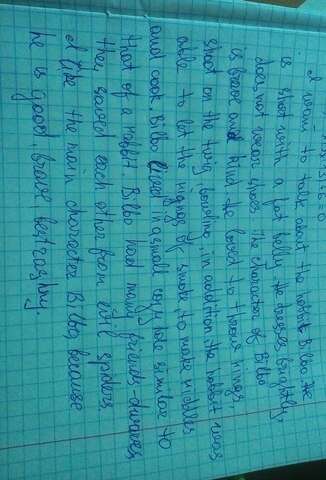 I want to talk about the hobbit Bilbo. He
is short with a fat belly. He dresses brightly,
does not wear shoes. The character of Bilbo
is brave and kind. He loved to throw rings,
shoot on the twig bowline, in addition, the hobbit was
able to let the rings of smoke, to make riddles
and cook. Bilbo lived in a small cozy hole similar to
that of a rabbit. Bilbo had many friends, dwarves,
they saved each other from evil spiders
I like the main character Bilbo, because
he is good, brave,